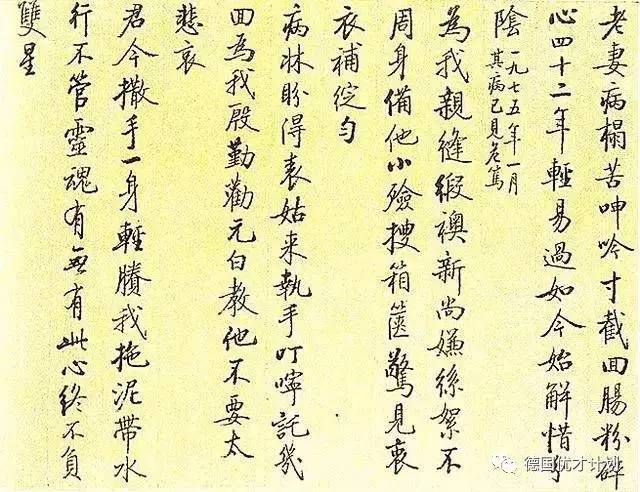 老妻病榻苦呻吟寸截回腸粉碎
心四十二年輕易過如今始解惜分
陰 一九七五年一月
其病已見危篤
為我親縫緞襖新尚嫌絲絮不
周身備他小殮搜箱篋驚見衷
衣補綻勻
病牀盼得表姑来執手叮嚀託幾
回為我殷勤勸元白教他不要太
悲哀
君今撒手一身輕賸我拖泥帶水
行不管靈魂有無有此心終不負
雙星
德国优才计划